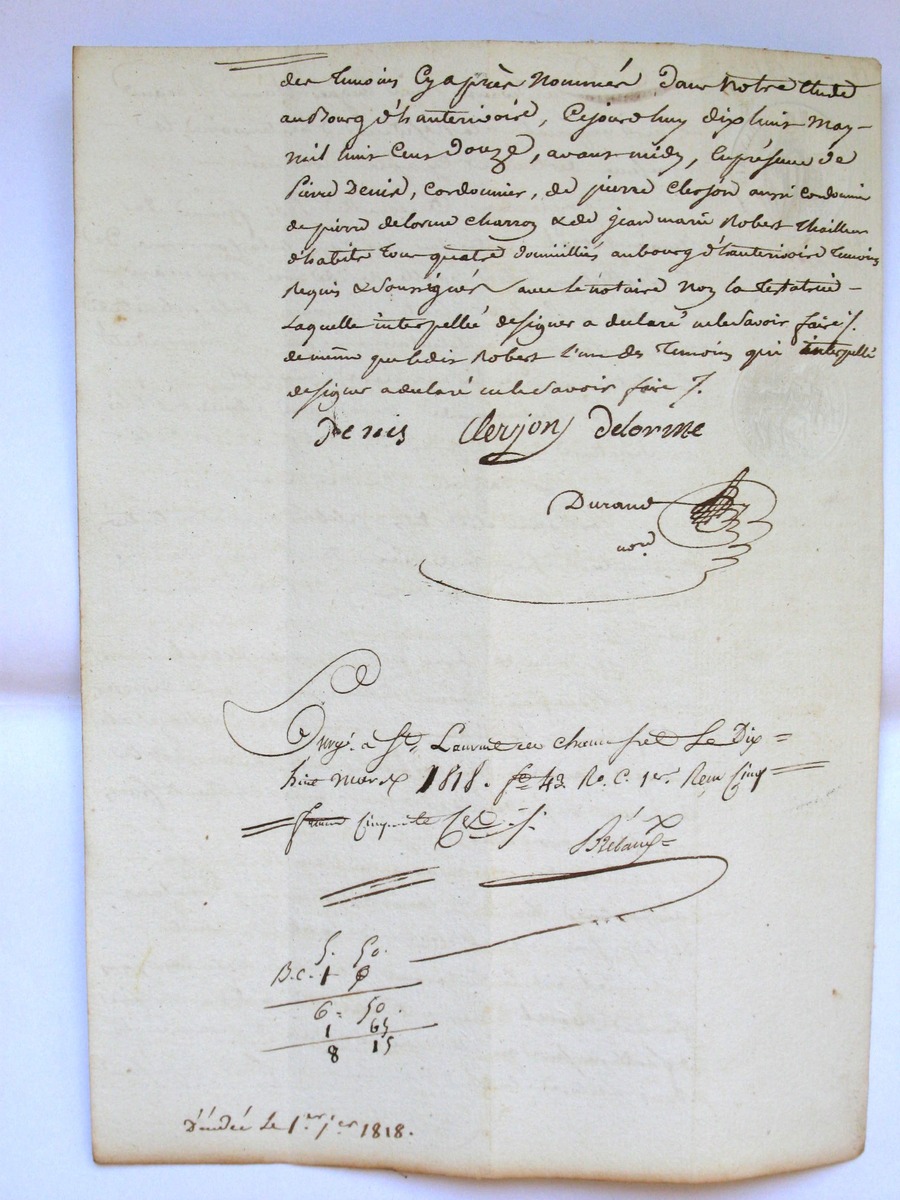 des temoins Cyaprès Nommés dans Notre Etude
au Bourg d'hauterivoire, Cejourdhuy dix huit May
mil huit Cent douze, avant midy, En présence de
Pierre Denis, Cordonnier, de pierre Clerjon aussi Cordonnier
de pierre delorme charron & de jean marie Robert thailleur
d'habits tous quatre domiciliés au bourg d'hauterivoire temoins
Requis & Soussignés avec le notaire Non la testatrice
Laquelle interpellée de signer a declaré ne le Savoir faire /.
de même que ledit Robert l'un des temoins qui interpellé
de signer a declaré ne le Savoir faire /.
Denis Clerjon delorme
Durand
nore
Enregé. a St. Laurent de chamousset Le Dix
huit Mars 1818. fo 43 Ro. C. 1er. Reçu Cinq
francs Cinquante
5. 50.
B.C. 1 0
6 = 50.
1 65
8 15
Décédée Le 1er. jer 1818.